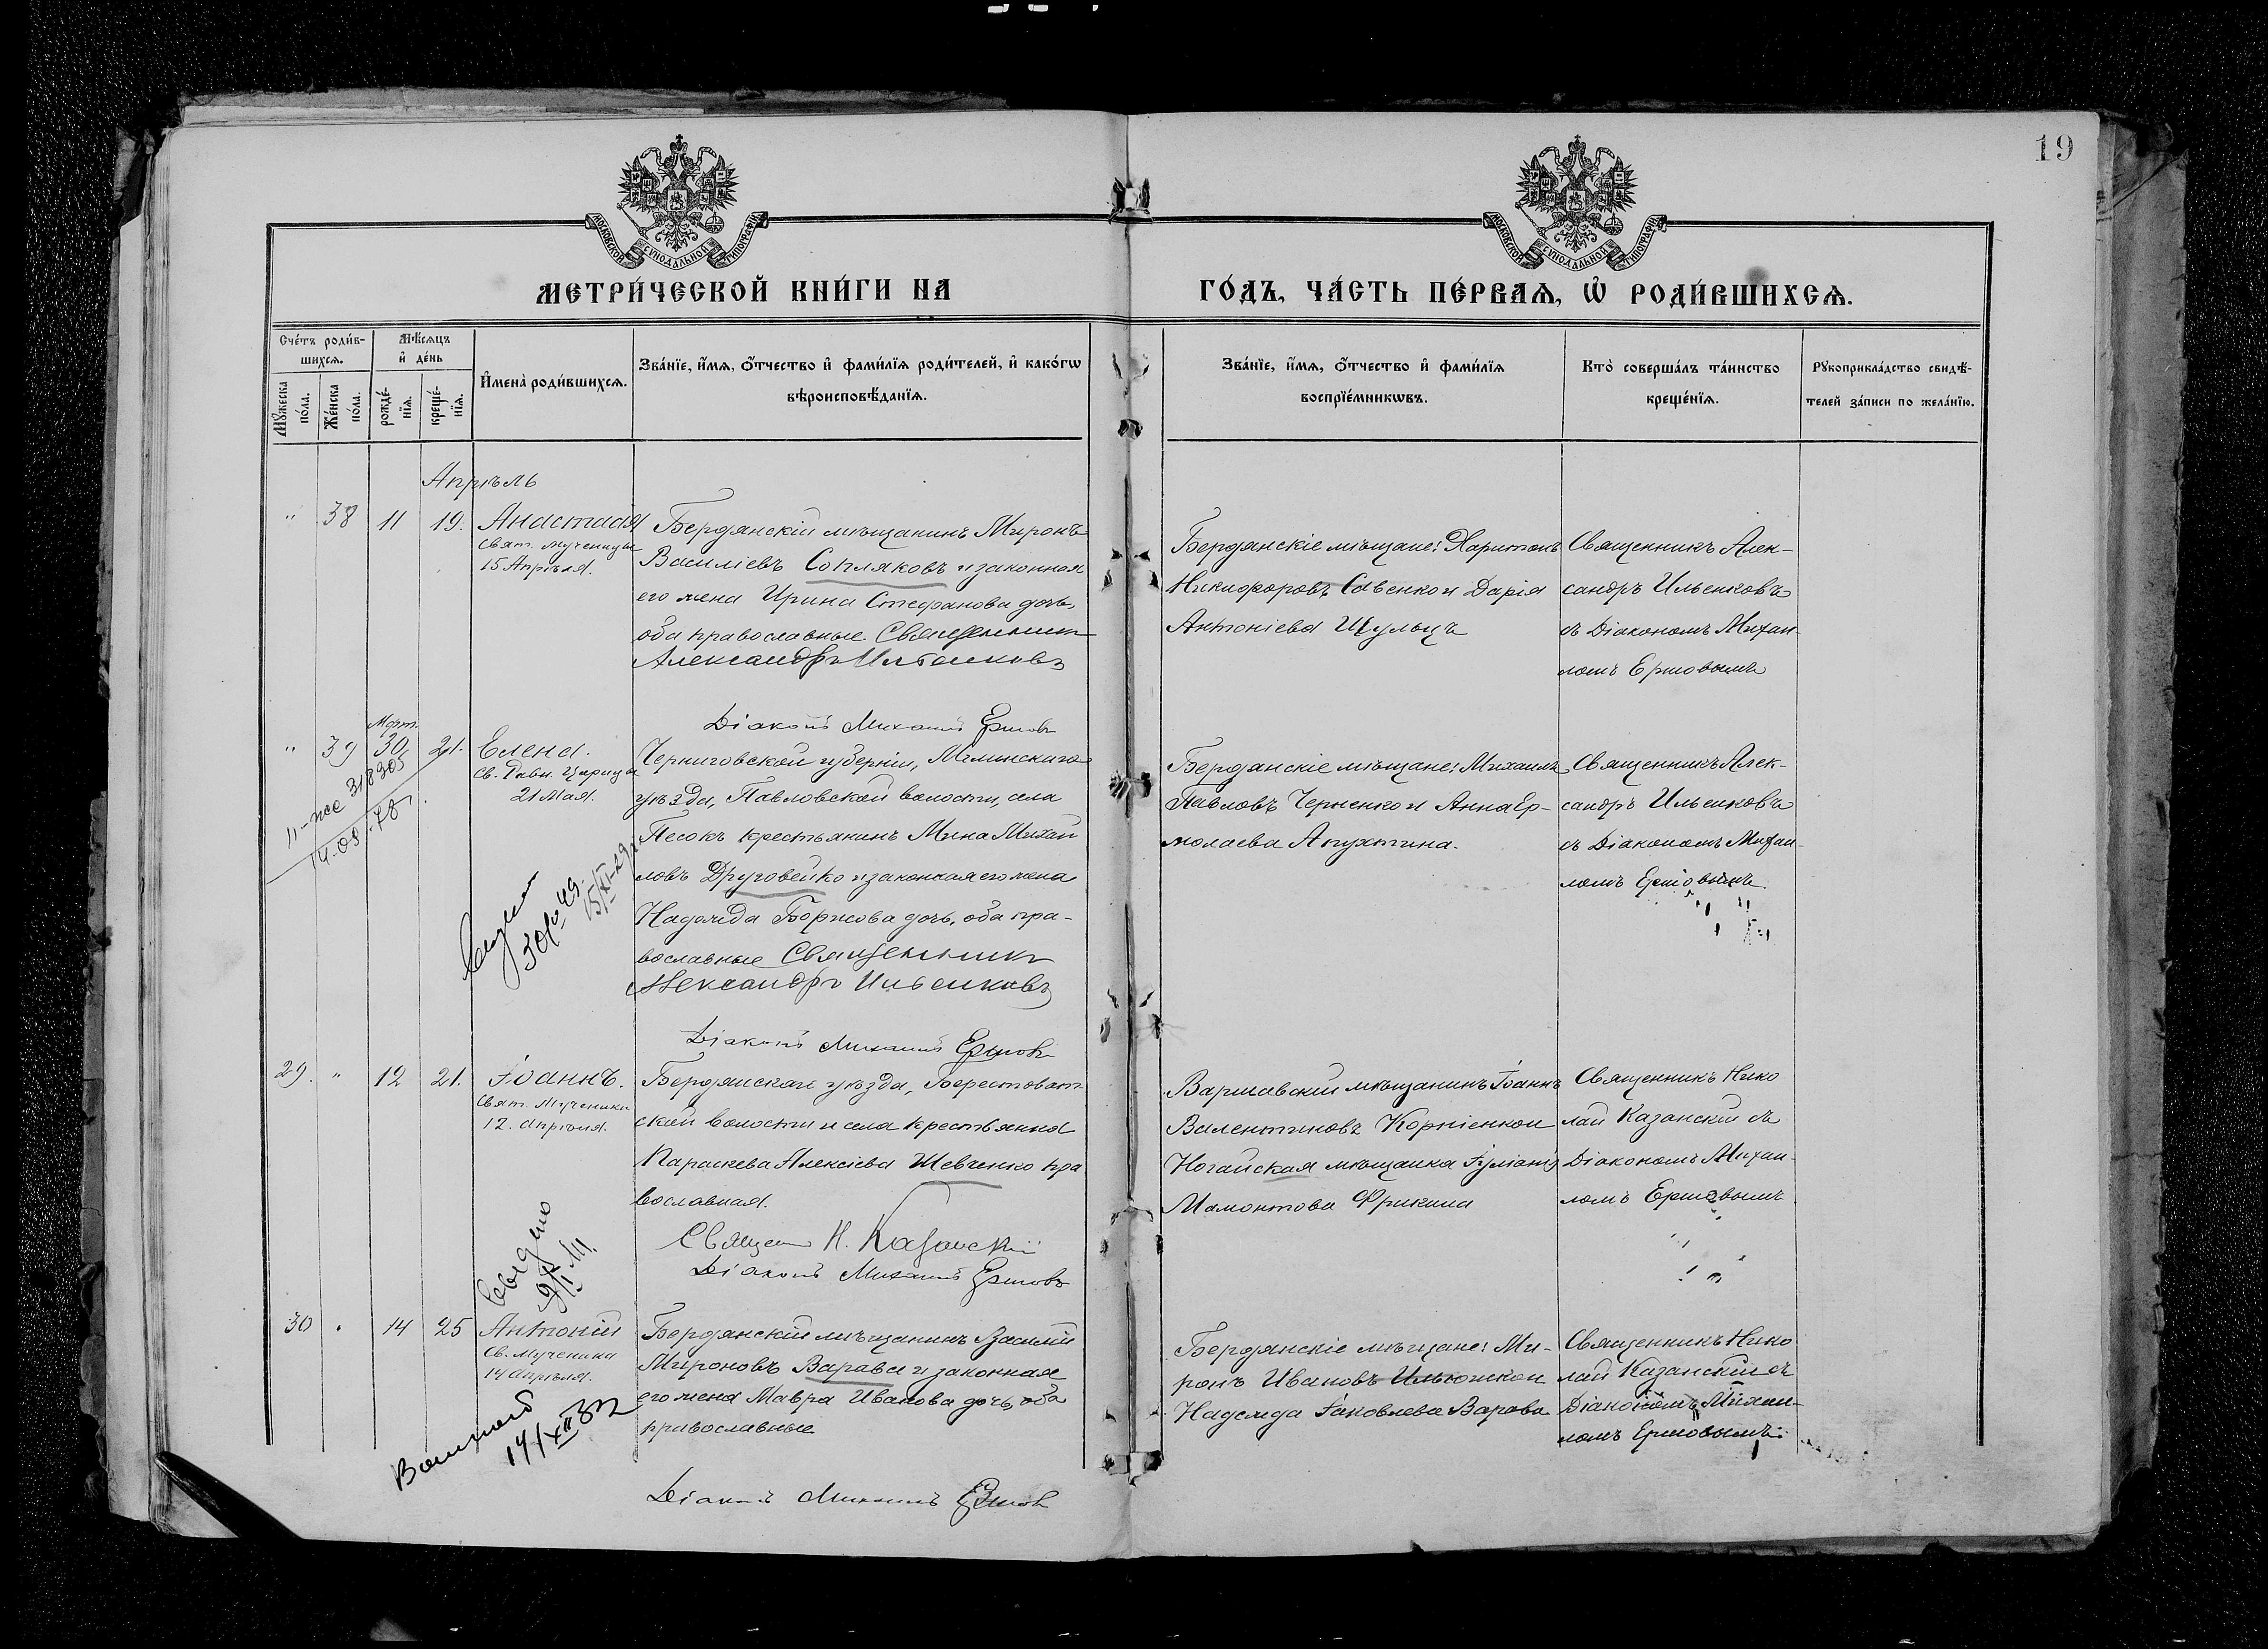 19
МОСКОВСКОЙ СѴНОДАЛЬНОЙ ТИПОГРАФІИ
МОСКОВСКОЙ СѴНОДАЛЬНОЙ ТИПОГРАФІИ
МЕТРИ́ЧЕСКОЙ КНИ́ГИ НА
ГО́ДЪ, ЧА́СТЬ ПЕ́РВАѦ, Ѡ҆ РОДИ́ВШИХСѦ.
Сче́тъ роди́в-
шихсѧ.
Мꙋжеска
по́ла.
Же́нска
по́ла.
Мѣ́сѧцъ
и҆ де́нь
рожде́-
нїѧ.
креще́-
нїѧ.
И҆мена̀ роди́вшихсѧ.
Зва́нїе, и҆́мѧ, ѻ҆́тчество и҆ фами́лїѧ роди́телей, и҆ како́гѡ
вѣроисповѣ́данїѧ.
Зва́нїе, и҆́мѧ, ѻ҆́тчество и҆ фами́лїѧ
воспрїе́мникѡвъ.
Кто̀ соверша́лъ та́инство
креще́нїѧ.
Рꙋкоприкла́дство свидѣ́-
телей за́писи по жела́нїю.
Апрѣль
" 38 11 19. Анастасія
Свят. мученицы
15 Апрѣля.
Бердянскій мѣщанинъ Миронъ
Василіевъ Сопляковъ и законная
его жена Ирина Стефанова дочь,
оба православные. Священникъ
Александръ Ильенковъ
Діаконъ Михаилъ Ершовъ
Бердянскіе мѣщане: Харитонъ
Никифоровъ Савенко и Дарія
Антоніева Шульцъ
Священникъ Алек-
сандръ Ильенковъ
съ Діакономъ Михаи-
ломъ Ершовымъ
" 39 Март. 30 21. Елена.
Св. Равн. Царицы
21 Мая.
11-жс 318305
14.09.78
301049.
15/XI-29
Черниговской губерніи, Мглинскаго
уѣзда, Павловской волости, села
Песокъ крестьянинъ Мина Михай
ловъ Друговейко и законная его жена
Надежда Борисова дочь, оба пра-
вославные Священникъ
Александръ Ильенковъ
Діаконъ Михаилъ Ершовъ
Бердянскіе мѣщане: Михаилъ
Павловъ Черненко и Анна Ер-
молаева Апухтина.
Священникъ Алек-
сандръ Ильенковъ
съ Діакономъ Михаи-
ломъ Ершовымъ.
29. " 12 21. Іоаннъ.
Свят. Мученика
12. апрѣля.
Бердянскаго уѣзда, Берестоват
ской волости и села крестьянка
Параскева Алексіева Шевченко пра
вославная.
Священ Н. Казанскій
Діаконъ Михаилъ Ершовъ
Варшавскій мѣщанинъ Іоаннъ
Валентиновъ Корніенко и
Ногайская мѣщанка Іуліанія
Мамонтова Фрикина
Священникъ Нико
лай Казанскій съ
Діакономъ Михаи-
ломъ Ершовымъ
30 " 14 25 Антоній
Св. Мученика
14 апрѣля.
14/XII 32
Бердянскій мѣщанинъ Василій
Мироновъ Варава и законная
его жена Мавра Иванова дочь, оба
православные
Діаконъ Михаилъ Ершовъ
Бердянскіе мѣщане: Ми-
ронъ Ивановъ Ильюшко и
Надежда Іаковлева Варава
Священникъ Нико
лай Казанскій съ
Діакономъ Михаи-
ломъ Ершовымъ.